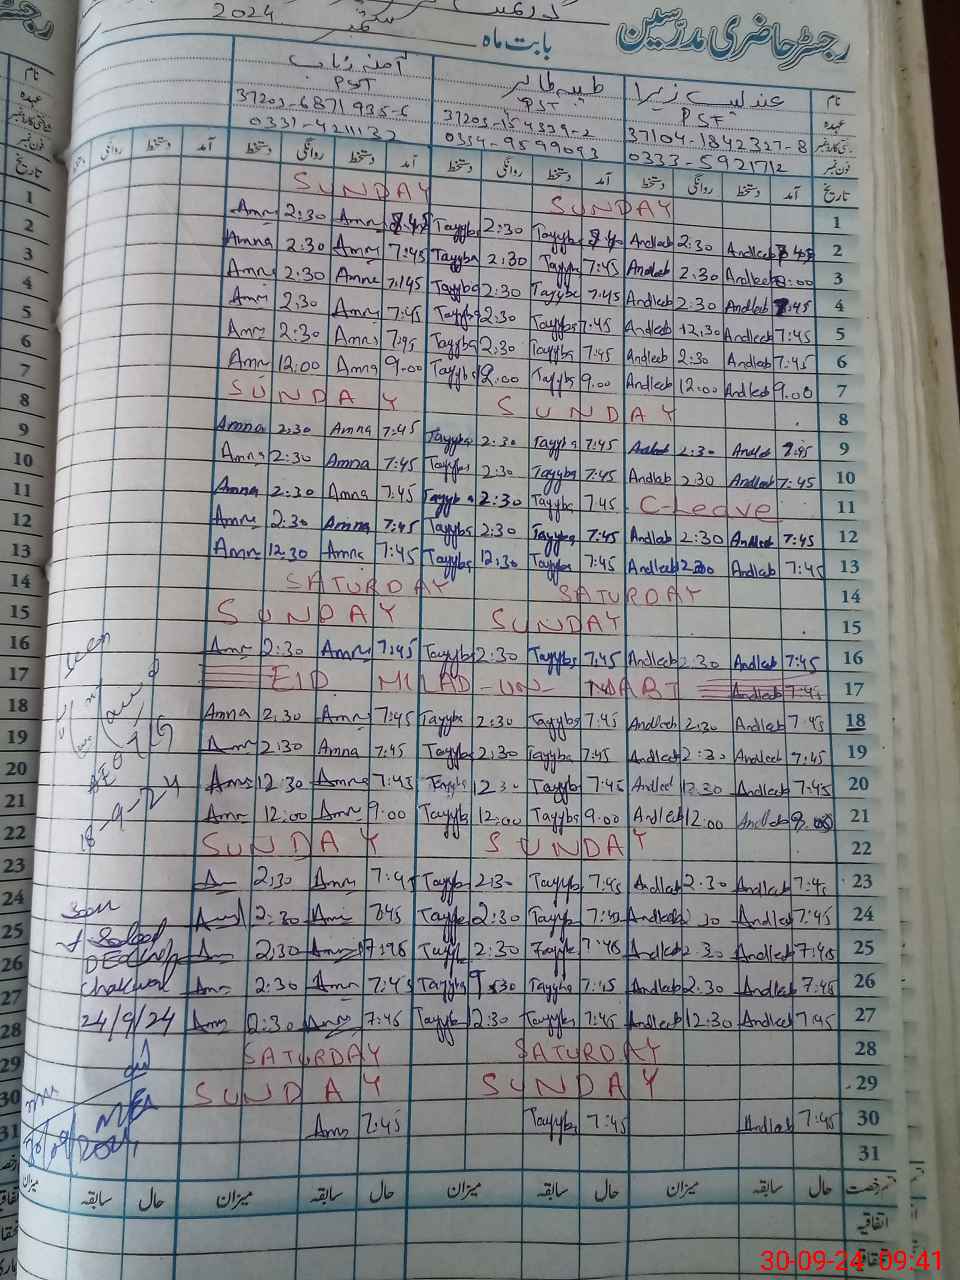 رجسٹر حاضری مدرسین
بابت ماہ ستمبر 2024
نام عندلیب زہرا طیبہ طاہر آمنہ رباب
عہدہ PST PST PST
37104-1842327-8 37203-6871935-6
فون نمبر 0333-5921712 0334-9599093 0331-4211132
تاریخ آمد دستخط روانگی دستخط آمد دستخط روانگی دستخط آمد دستخط روانگی دستخط آمد
1 SUNDAY SUNDAY
2 Andleeb 2:30 Andleeb Tayyba 2:30 Tayyba Amn 2:30 Amn
3 8:00 Andleeb 2:30 Andleeb 7:45 Tayyba 2:30 Tayyba 7:45 Amna 2:30 Amna
4 7:45 Andleeb 2:30 Andleeb 7:45 Tayyba 2:30 Tayyba 7:45 Amna 2:30 Amn
5 7:45 Andleeb 12:30 Andleeb 7:45 Tayyba 2:30 Tayyba 7:45 Amn 2:30 Amn
6 7:45 Andleeb 2:30 Andleeb 7:45 Tayyba 2:30 Tayyba 7:45 Amn 2:30 Amn
7 9.00 Andleeb 12:00 Andleeb 9.00 Tayyba 12.00 Tayyba 9.00 Amna 12:00 Amn
8 SUNDAY SUNDAY
9 7:45 Andleb 2:30 Andleb 7:45 Tayyba 2:30 Tayyba 7:45 Amna 2:30 Amna
10 7:45 Andlab 2:30 Andlab 7:45 Tayyba 2:30 Tayyba 7:45 Amna 2:30 Amna
11 C-Leave 7:45 Tayyba 2:30 Tayyba 7:45 Amna 2:30 Amna
12 7:45 Andleeb 2:30 Andlab 7:45 Tayyba 2:30 Tayyba 7:45 Amna 2:30 Amn
13 7:45 Andlab Andleeb 7:45 Tayyba 12:30 Tayyba 7:45 Amna 12:30 Amn
14 SATURDAY SATURDAY
15 SUNDAY SUNDAY
16 7:45 Andlab 2:30 Andleeb 7:45 Tayyba 2:30 Tayyba 7:45 Amn 2:30 Amn
17 EID MILAD-UN-NABI Andlab 7:45
18 7:45 Andlab 2:30 Andleeb 7:45 Tayyba 2:30 Tayyba 7:45 Amn 2:30 Amna
19 7:45 Andleeb 2:30 Andleeb 7:45 Tayyba 2:30 Tayyba 7:45 Amna 2:30 Amn
20 7:45 Andlab 12:30 Andleef 7:45 Tayyba 12:30 Tayyba 7:45 Amna 12:30 Amn
21 Andlab 12:00 Andlab 9:00 Tayyba 12:00 Tayyba 9:00 Amn 12:00 Amn
22 SUNDAY SUNDAY
23 7:45 Andlab 2:30 Andlab 7:45 Tayyba 2:30 Tayyba 7:45 Amn 2:30
24 7:45 Andleb Andleeb 7:45 Tayyba 2:30 Tayyba 7:45 Amn 2:30
25 7:45 Andlab 2:30 Andlab 7:45 2:30 Tayyba 7:45 2:30
26 7:45 Andlab 2:30 Andlab 7:45 Tayyba Tayyba 7:45 Amn 2:30 Amn
27 7:45 Andleeb 12:30 Andleeb 7:45 Tayyba 2:30 Tayyba 7:45 Amn 2:30 Amn
28 SATURDAY SATURDAY
29 SUNDAY SUNDAY
30 7:45 Andlab 7:45 Tayyba 7:45 Amn
31
حال سابقہ میزان حال سابقہ میزان حال سابقہ میزان حال سابقہ میزان
اتفاقیہ
Seen
18-9-24
Chakwal
24/9/24
30-09-24 09:41